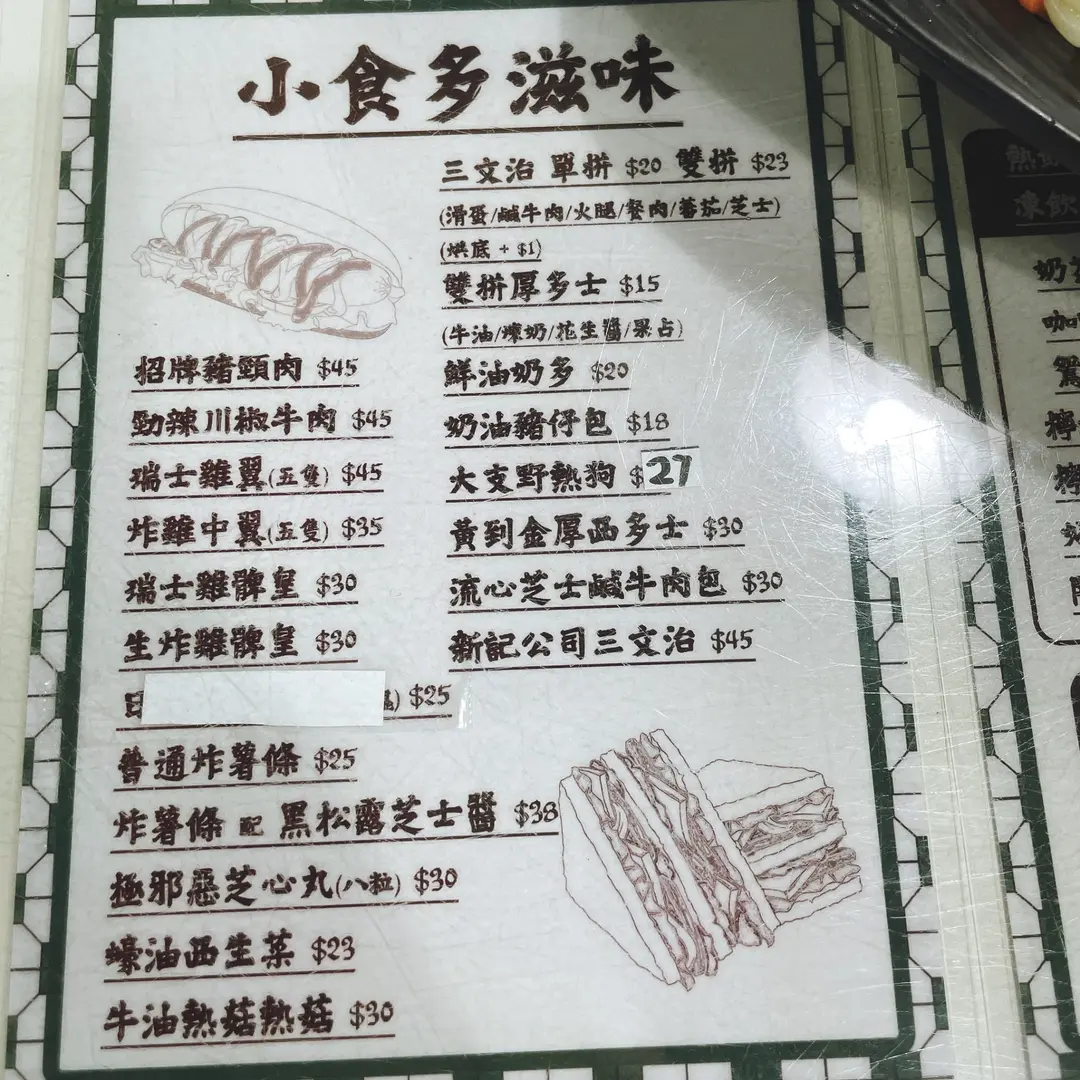 小食多滋味
三文治 單拼 $20 雙拼 $23
(滑蛋/鹹牛肉/火腿/餐肉/蕃茄/芝士)
(烘底 + $1)
雙拼厚多士 $15
(牛油/煉奶/花生醬/果占)
鮮油奶多 $20
奶油豬仔包 $18
大支野熱狗 $27
黃到金厚西多士 $30
流心芝士鹹牛肉包 $30
新記公司三文治 $45
招牌豬頸肉 $45
勁辣川椒牛肉 $45
瑞士雞翼(五隻) $45
炸雞中翼(五隻) $35
瑞士雞髀皇 $30
生炸雞髀皇 $30
$25
普通炸薯條 $25
炸薯條 配 黑松露芝士醬 $38
極邪惡芝心丸(八粒) $30
蠔油西生菜 $23
牛油熱菇熱菇 $30
凍飲